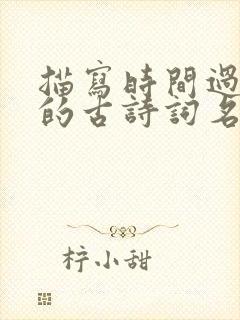 描寫時間過
的古詩詞名
柠小甜